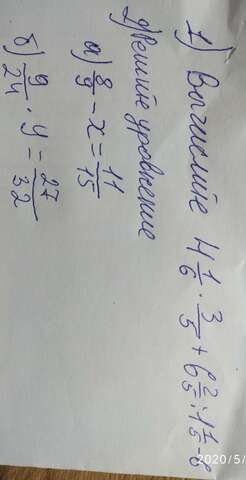 1) Вычислите 4 1/6 · 3/5 + 6 2/5 : 1 1/5 - 6
2) Решите уравнение
а) 8/9 - x = 11/15
б) 9/24 · y = 27/32
2020/5/